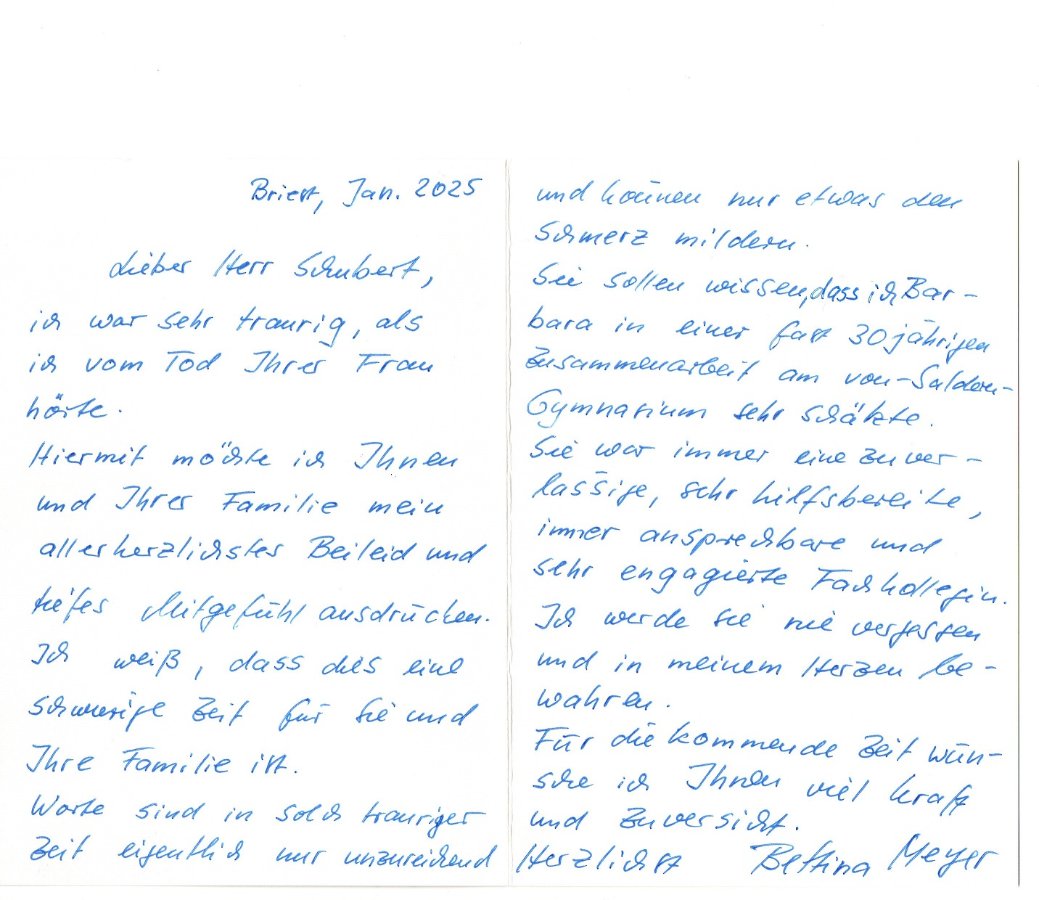 Briest, Jan. 2025
Lieber Herr Schubert,
ich war sehr traurig, als
ich vom Tod Ihrer Frau
hörte.
Hiermit möchte ich Ihnen
und Ihrer Familie mein
allerherzlichstes Beileid und
tiefes Mitgefühl ausdrücken.
Ich weiß, dass dies eine
schwierige Zeit für Sie und
Ihre Familie ist.
Worte sind in solch trauriger
Zeit eigentlich nur unzureichend
und können nur etwas den
Schmerz mildern.
Sie sollen wissen, dass ich Bar-
bara in einer fast 30jährigen
Zusammenarbeit am von-Saldern-
Gymnasium sehr schätzte.
Sie war immer eine zuver-
lässige, sehr hilfsbereite,
immer ansprechbare und
sehr engagierte Fachkollegin.
Ich werde sie nie vergessen
und in meinem Herzen be-
wahren.
Für die kommende Zeit wün-
sche ich Ihnen viel Kraft
und Zuversicht.
Herzlichst Bettina Meyer